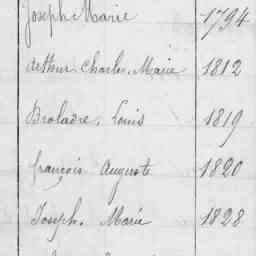 Joseph Marie 1794
Arthur Charles Marie 1812
Broladre, Louis 1819
François Auguste 1820
Joseph. Marie 1828